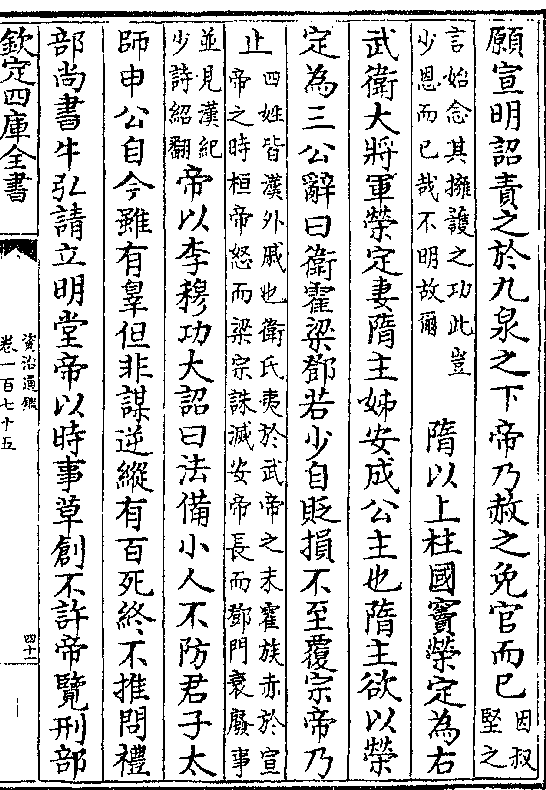 願宣明詔責之於九泉之下帝乃赦之免官而已因叔堅之
言始念其擁護之功此豈少恩而已哉不明故爾　隋以上柱國竇榮定為右
武衛大將軍榮定妻隋主姊安成公主也隋主欲以榮
定為三公辭曰衛霍梁鄧若少自貶損不至覆宗帝乃
止四姓皆漢外戚也衛氏夷於武帝之末霍族赤於宣帝之時桓帝怒而梁宗誅滅安帝長而鄧門衰廢事
並見漢紀少詩紹翻帝以李穆功大詔曰法備小人不防君子太
師申公自今雖有辠但非謀逆縱有百死終不推問禮
部尚書牛弘請立明堂帝以時事草創不許帝覽刑部
欽定四庫全書
資治通鑑
卷一百七十五
四十一